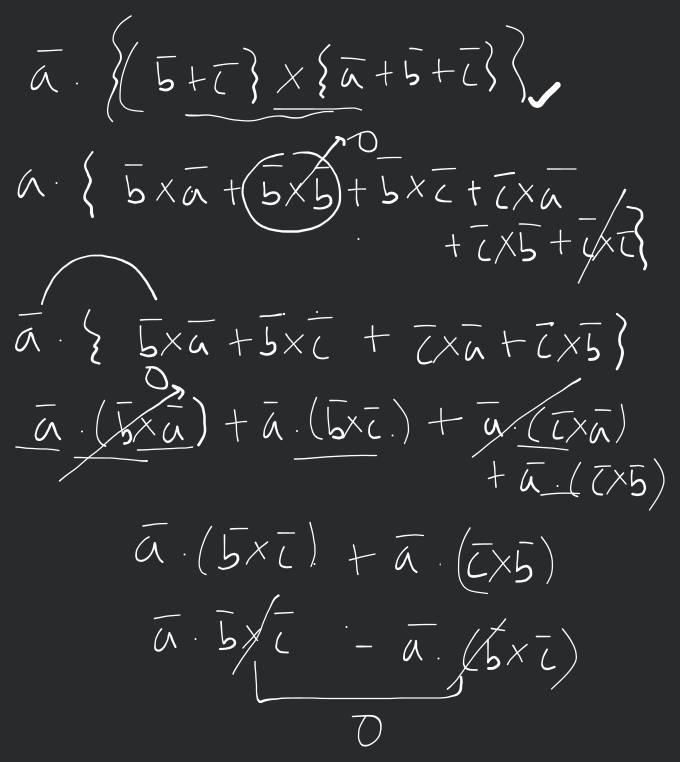 a̅ · {(b̅ + c̅} × {a̅ + b̅ + c̅}} ✓
a · { b̅ × a̅ + b̅ × b̅ + b̅ × c̅ + c̅ × a̅
0
+ c̅ × b̅ + c̅ × c̅}
a̅ · { b̅ × a̅ + b̅ × c̅ + c̅ × a̅ + c̅ × b̅ }
0
a̅ · (b̅ × a̅) + a̅ · (b̅ × c̅) + a̅ · (c̅ × a̅)
+ a̅ · (c̅ × b̅)
a̅ · (b̅ × c̅) + a̅ · (c̅ × b̅)
a̅ · b̅ × c̅ - a̅ · (b̅ × c̅)
0